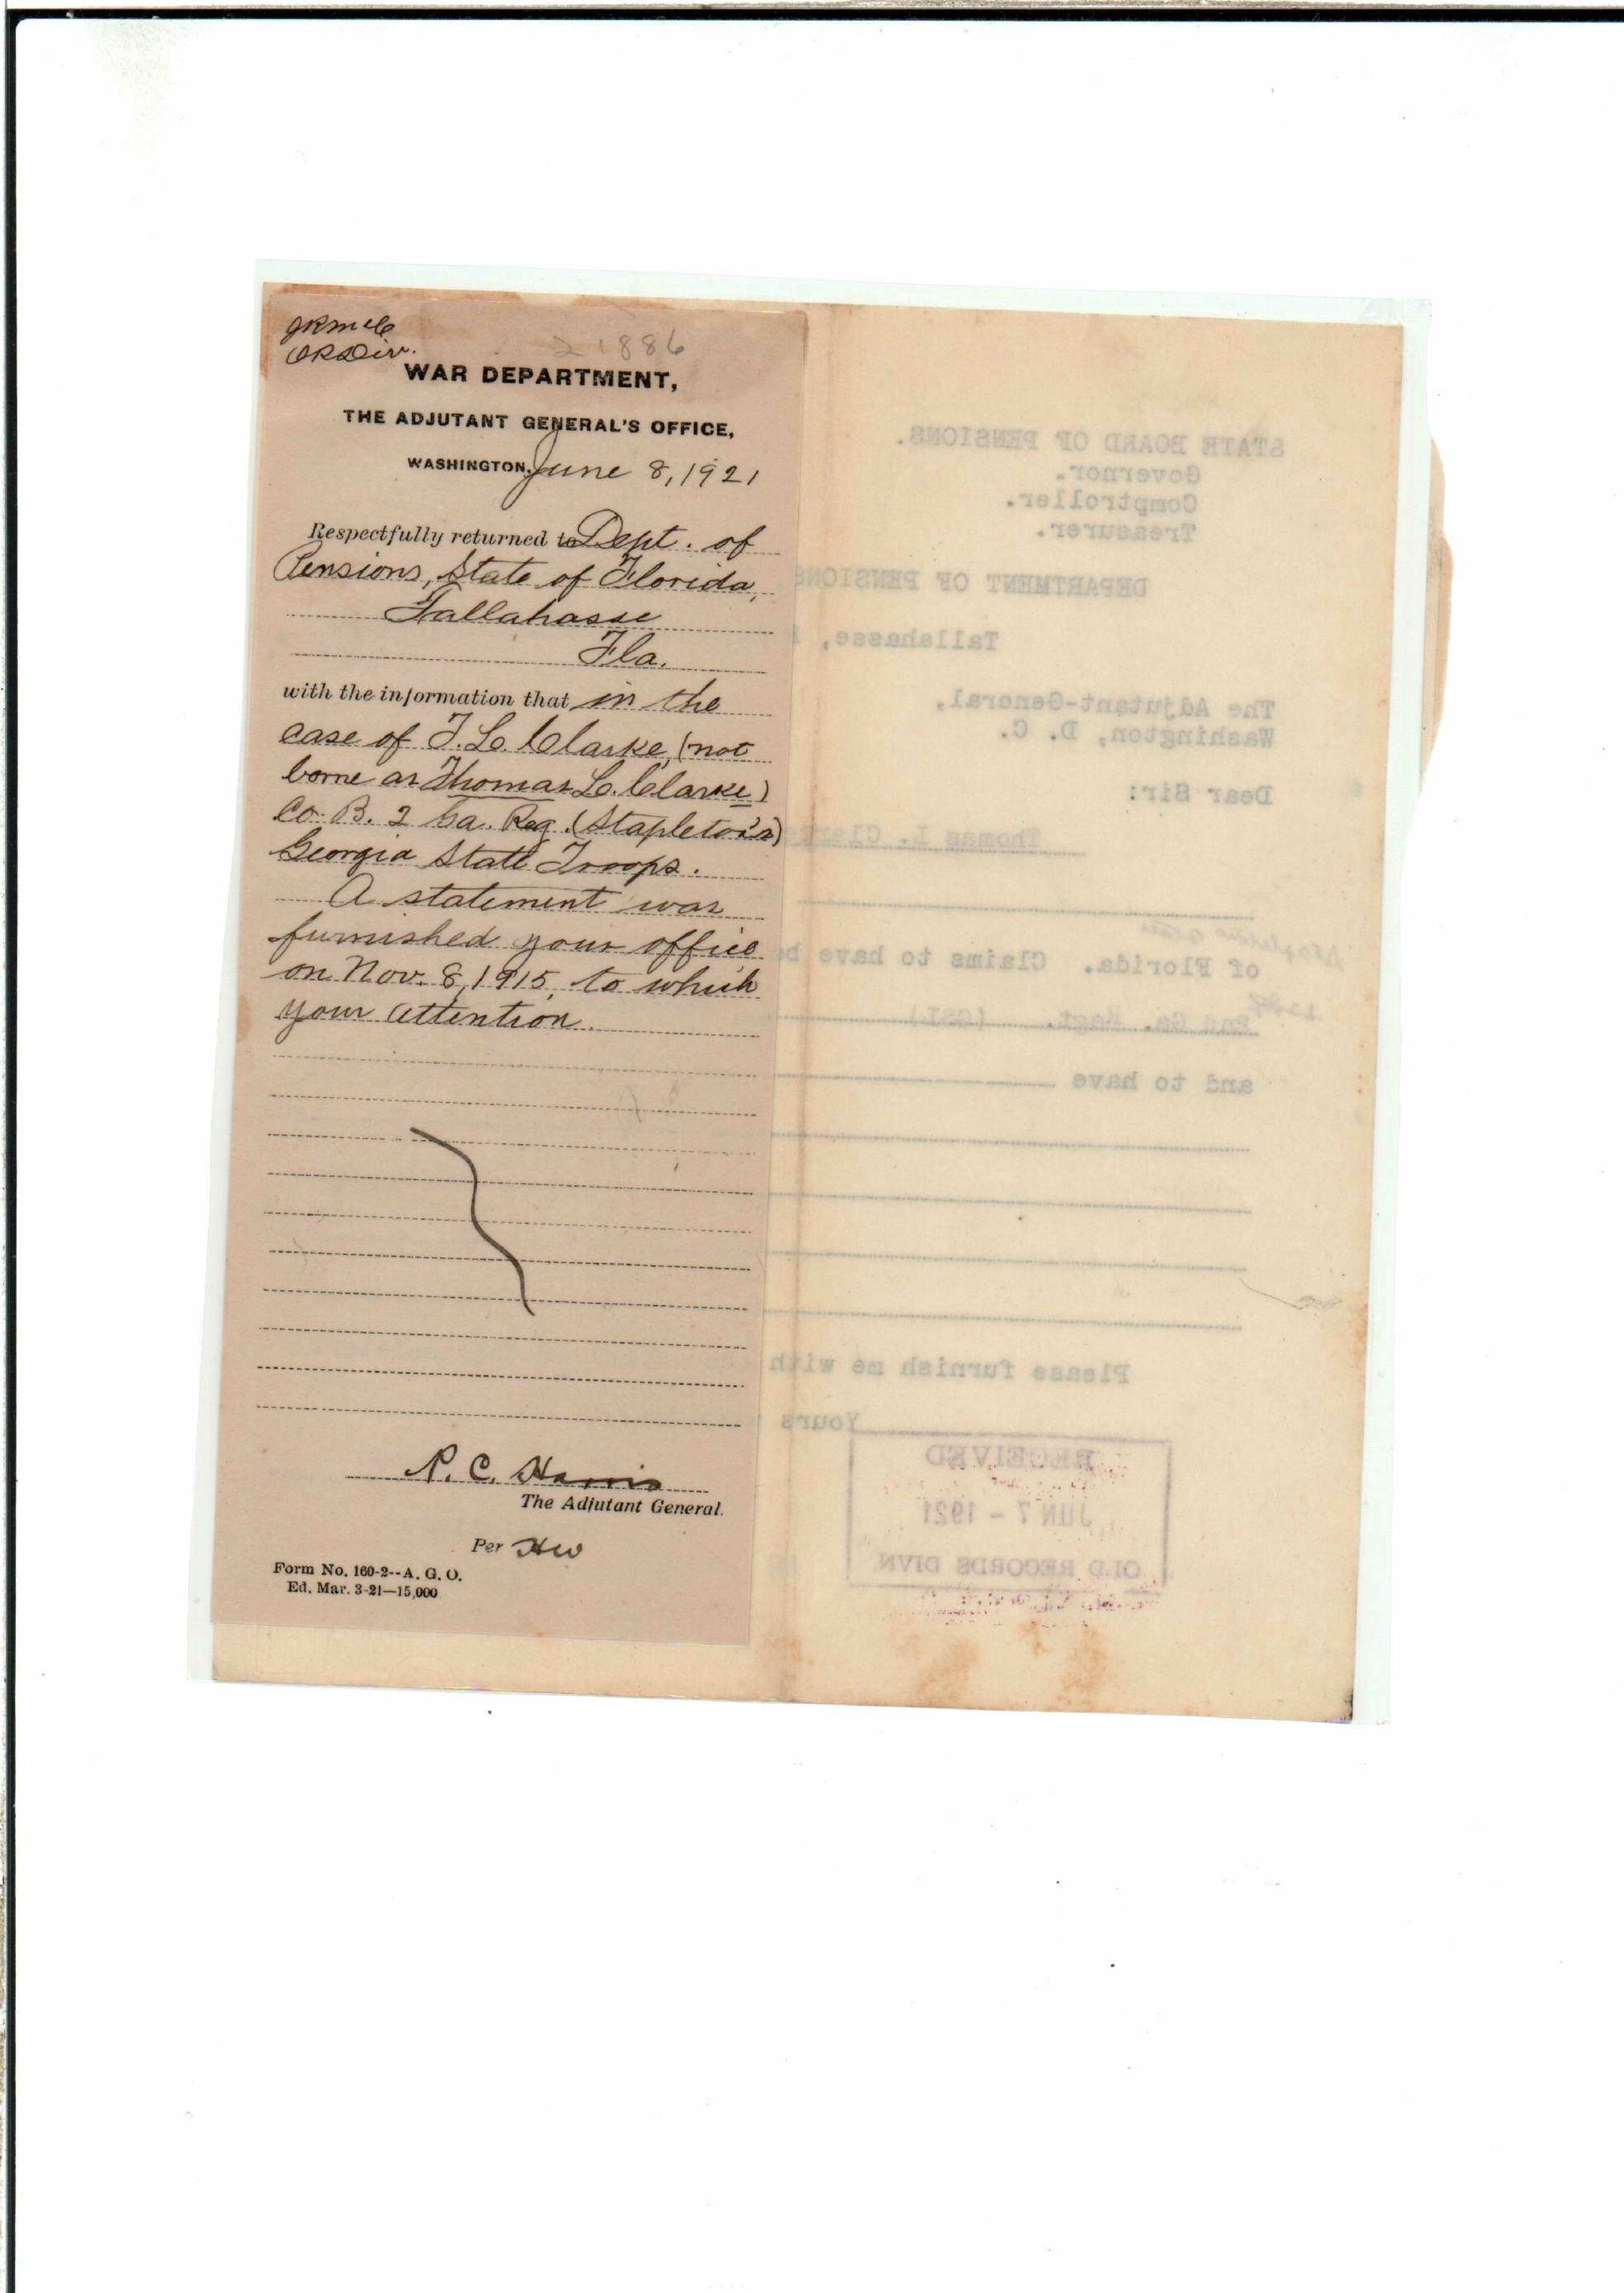 JRMcC
ORDiv.
21886
WAR DEPARTMENT,
THE ADJUTANT GENERAL'S OFFICE,
WASHINGTON, June 8, 1921
Respectfully returned to Dept. of
Pensions, State of Florida,
Tallahasse
Fla.
with the information that in the
case of T. L. Clarke, (not
borne as Thomas L. Clarke)
Co. B. 2 Ga. Reg. (Stapleton's)
Georgia State Troops.
A statement was
furnished your office
on Nov. 8, 1915, to which
your attention.
P. C. Harris
The Adjutant General.
Per HW
Form No. 160-2--A. G. O.
Ed. Mar. 3-21—15,000
STATE BOARD OF PENSIONS.
Governor.
Comptroller.
Treasurer.
DEPARTMENT OF PENSIONS
Tallahasse,
The Adjutant-General,
Washington, D. C.
Dear Sir:
Thomas L. Clar
of Florida. Claims to have be
2nd Ga. Regt. (GSI)
and to have
Please furnish me with
Yours
RECEIVED
JUN 7 - 1921
OLD RECORDS DIVN